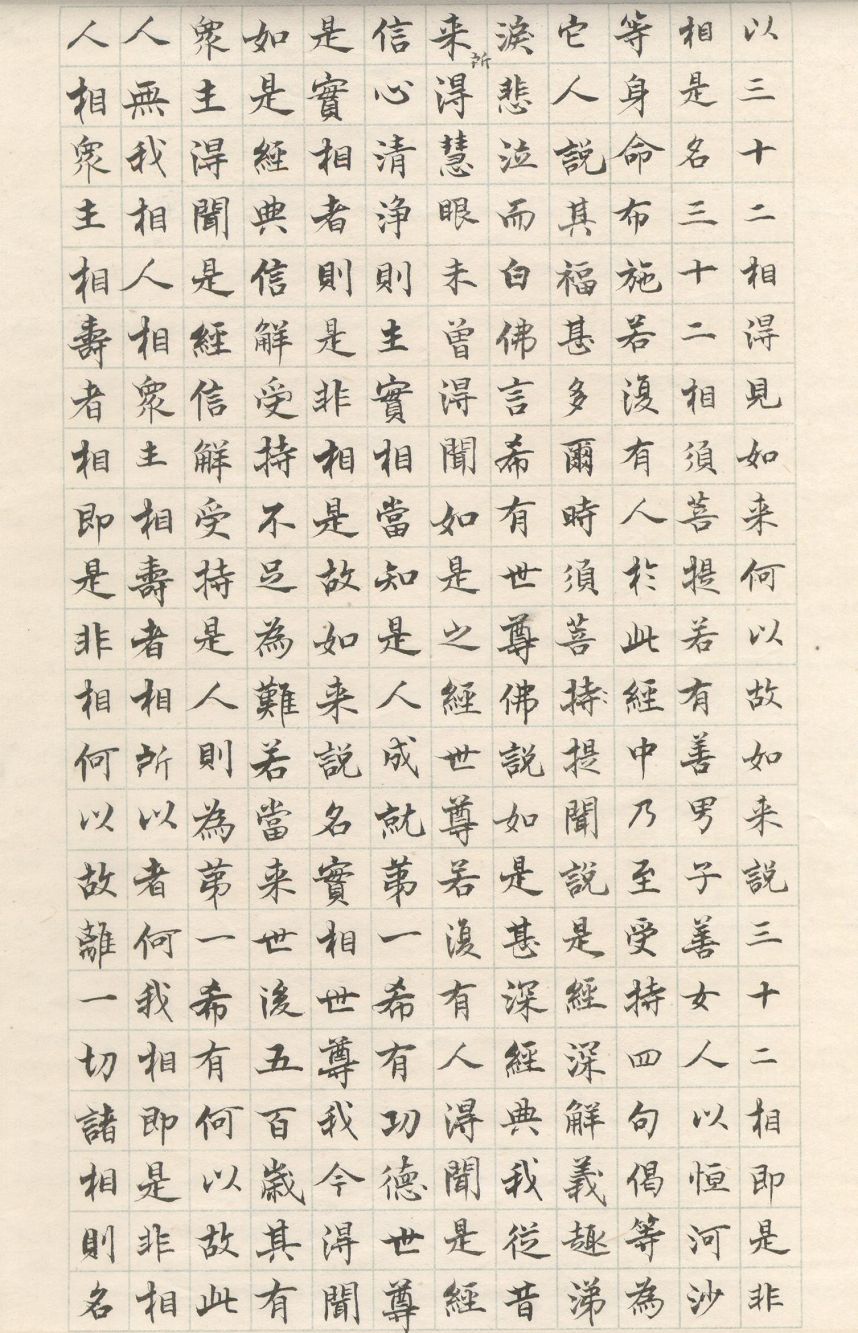 以三十二相得見如来何以故如来說三十二相即是非
相是名三十二相須菩提若有善男子善女人以恒河沙
等身命布施若復有人於此經中乃至受持四句偈等為
它人說其福甚多爾時須菩持提聞說是經深解義趣涕
淚悲泣而白佛言希有世尊佛說如是甚深經典我從昔
来所得慧眼未曾得聞如是之經世尊若復有人得聞是經
信心清淨則生實相當知是人成就第一希有功德世尊
是實相者則是非相是故如来說名實相世尊我今得聞
如是經典信解受持不足為難若當来世後五百歲其有
衆生得聞是經信解受持是人則為第一希有何以故此
人無我相人相衆生相壽者相所以者何我相即是非相
人相衆生相壽者相即是非相何以故離一切諸相則名